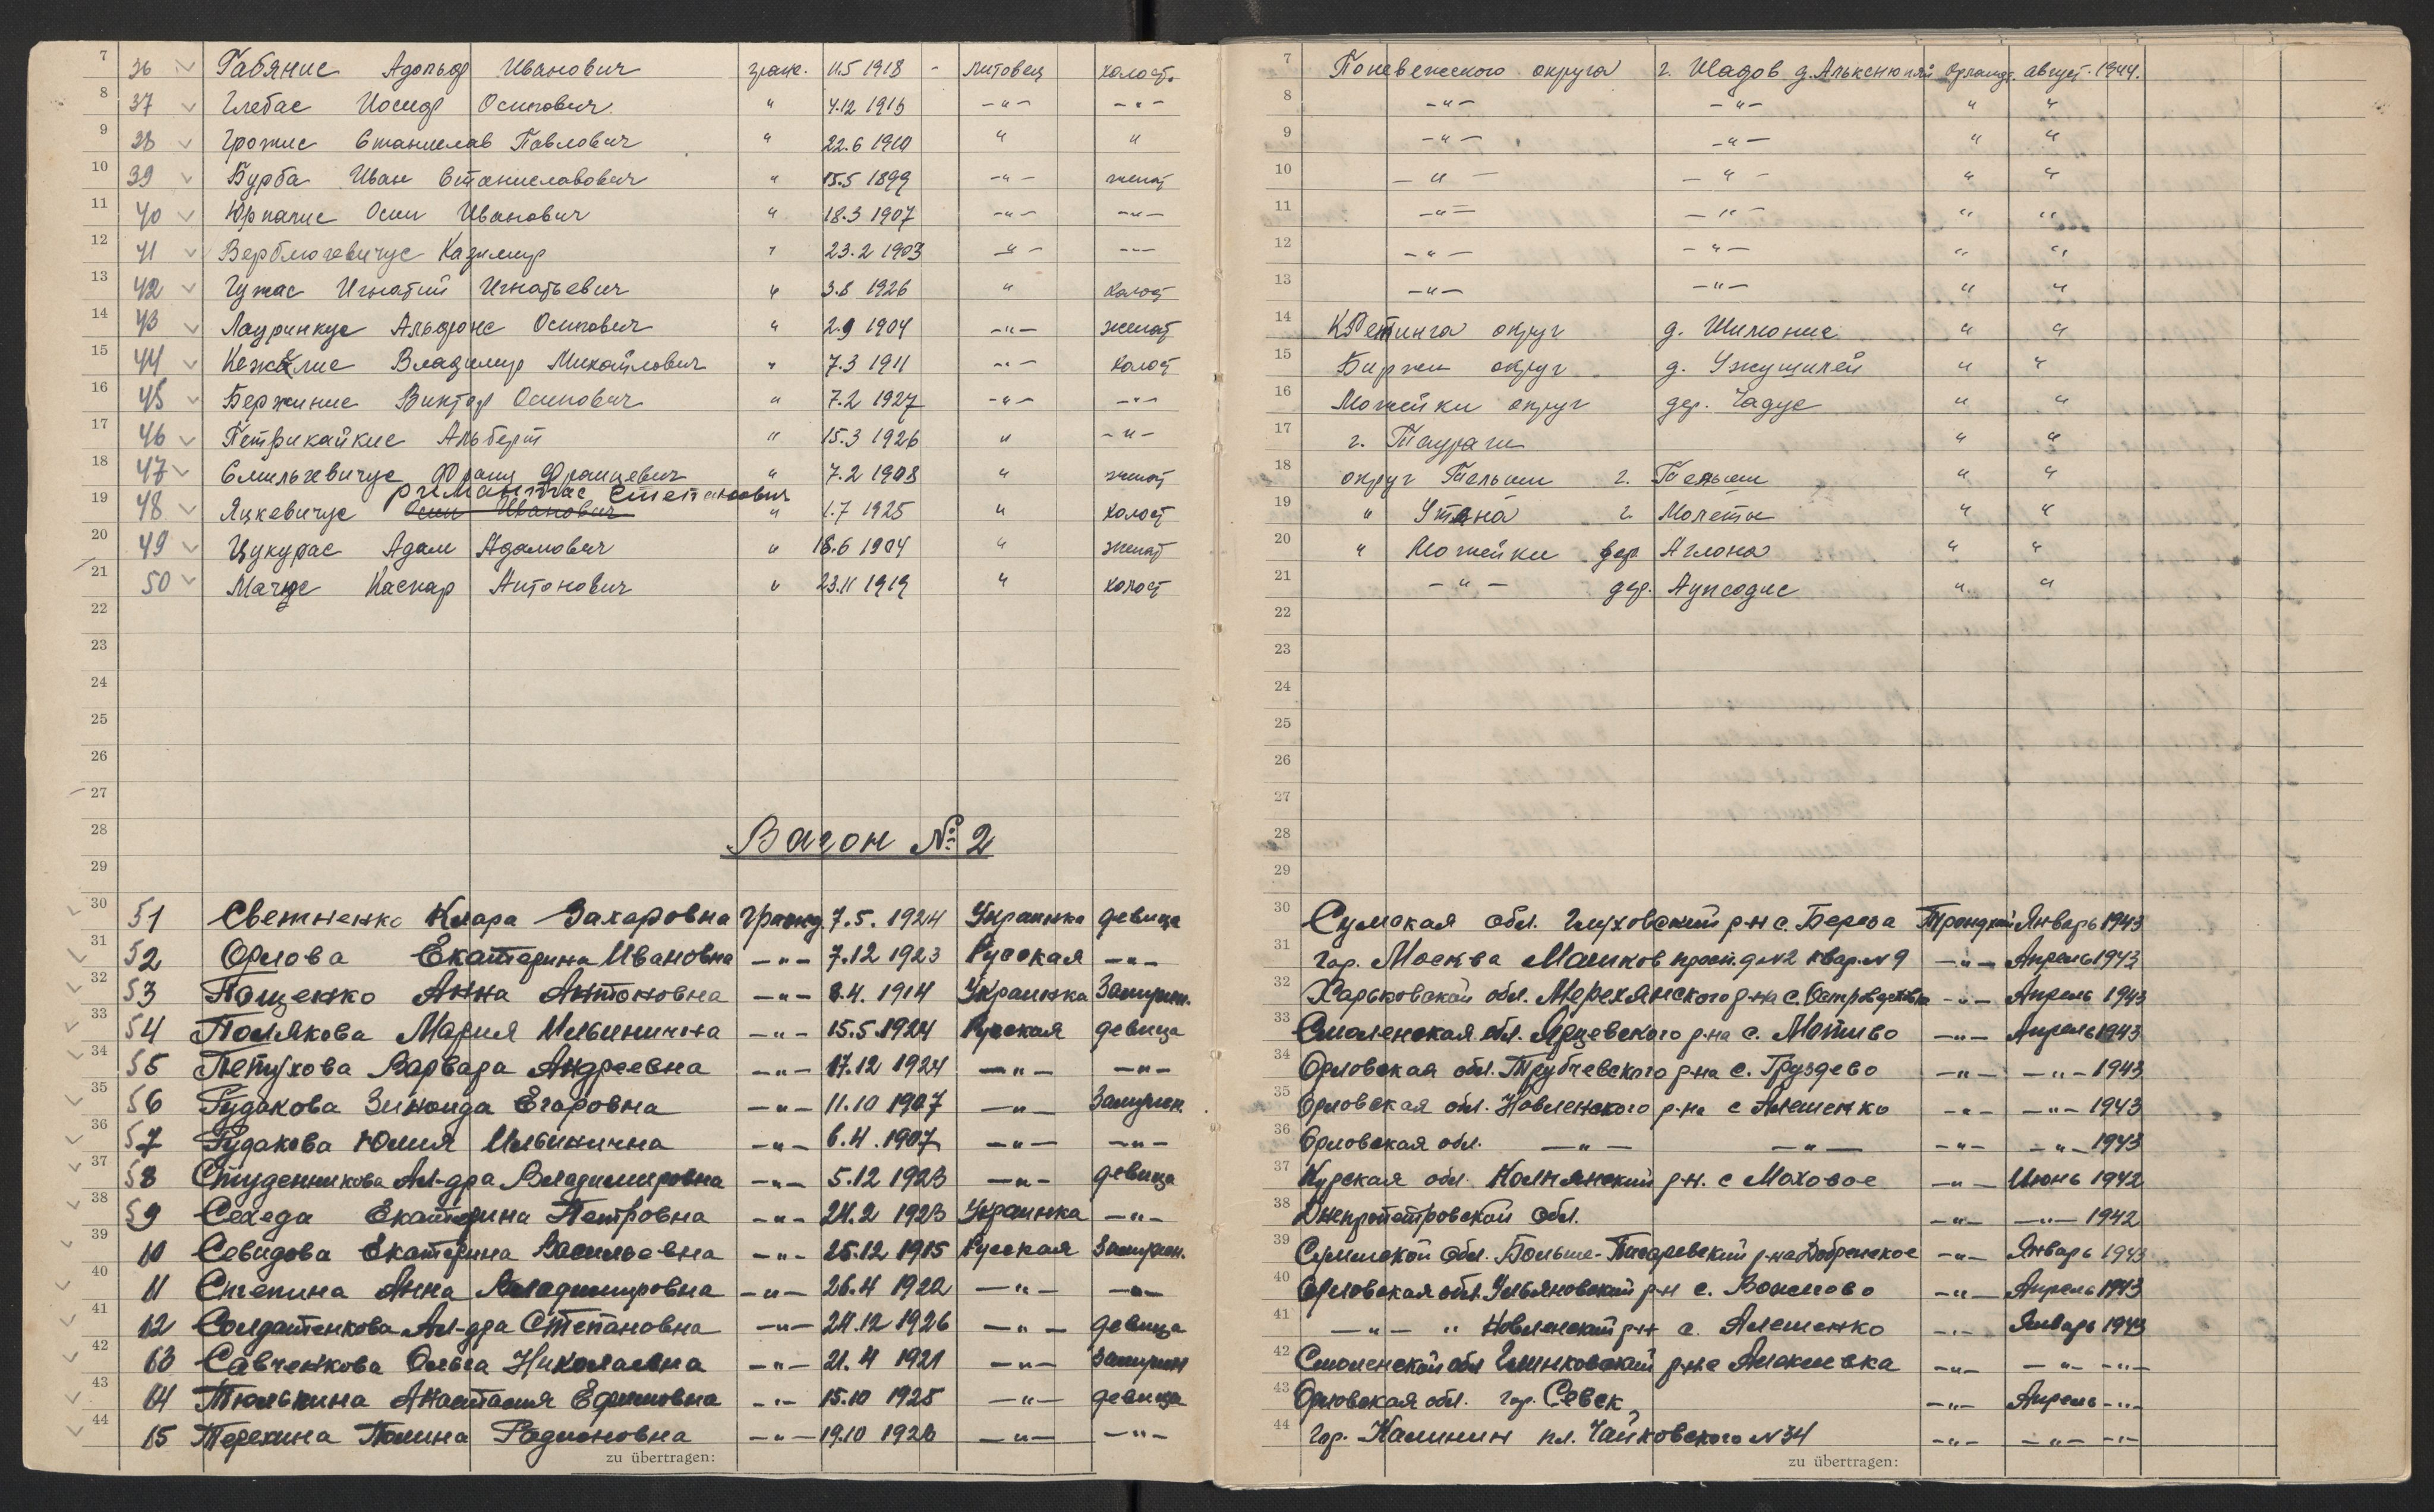 7 36 Габянис Адольф Иванович гражд. 11.5 1918 - литовец холост. 7 Поневежского округа г. Шадов д. Алькснюпяй август 1944.
8 37 Глебас Иосиф Осипович " 4.12 1913 -"- -"- 8 -"- -"- " "
9 38 Грожис Станислав Павлович " 22.6 1910 " " 9 -"- -"- " "
10 39 Бурба Иван Станиславович " 15.5 1899 -"- женат 10 -"- -"- " "
11 40 Юрпалис Осип Иванович " 18.3 1907 -"- -"- 11 -"- -"- " "
12 41 Верблюгевичус Казимир " 23.2 1903 -"- -"- 12 -"- -"- " "
13 42 Гужас Игнатий Игнатьевич " 3.8 1926 " холост 13 -"- -"- " "
14 43 Лауринкус Альфонс Осипович " 2.9 1904 -"- женат 14 Кретинга округ д. Шимонис " "
15 44 Кежалис Владимир Михайлович " 7.3 1911 -"- холост 15 Биржи округ д. Ужушилей " "
16 45 Бержинис Виктор Осипович " 7.2 1927 -"- -"- 16 Можейки округ дер. Чадус " "
17 46 Петрикайкис Альберт " 15.3 1926 " -"- 17 г. Таураги " "
18 47 Смильгевичус Франц Францевич " 7.2 1908 " женат 18 округ Тельши г. Тельши " "
Римантас Степанович
19 48 Яцкевичус Осип Иванович " 1.7 1925 " холост 19 " Утяна г. Молеты " "
20 49 Цукурас Адам Адамович " 18.6 1904 " женат 20 " Можейки дер. Аглона " "
21 50 Мачюс Каспар Антонович " 23.11 1919 " холост 21 -"- дер. Аупсодис " "
22 22
23 23
24 24
25 25
26 26
27 27
28 Вагон № 2 28
29 29
30 51 Светненко Клара Захаровна гражд. 7.5. 1924 Украинка девица 30 Сумская обл. Глуховский р-н с. Береза Январь 1943
31 52 Орлова Екатерина Ивановна -"- 7.12 1923 Русская -"- 31 гор. Москва Машков проезд. д №2 квар. №9 -"- Апрель 1943
32 53 Пащенко Анна Антоновна -"- 8.4. 1914 Украинка Замужн. 32 Харьковской обл. Мерехянского р-на с. -"- Апрель 1943
33 54 Полякова Мария Ильинична -"- 15.5.1924 Русская девица 33 Смоленская обл. Ярцевского р-на с. Мотиво -"- Апрель 1943
34 55 Петухова Варвара Андреевна -"- 17.12 1924 -"- -"- 34 Орловская обл. Трубчевского р-на с. Груздево -"- -"- 1943
35 56 Рудакова Зинаида Егоровна -"- 11.10 1907 -"- Замужн. 35 Орловская обл. Новленского р-на с Алешенко -"- -"- 1943
36 57 Рудакова Юлия Ильинична -"- 6.4.1907 -"- -"- 36 Орловская обл. -"- -"- -"- -"- 1943
37 58 Студенникова Ал-дра Владимировна -"- 5.12 1923 -"- девица 37 Курская обл. Колпянский р-н. с Маховое -"- Июнь 1942
38 59 Сехеда Екатерина Петровна -"- 24.2 1923 Украинка -"- 38 Днепропетровской Обл. -"- -"- 1942
39 60 Севидова Екатерина Васильевна -"- 25.12 1915 Русская Замужн. 39 Сумской Обл. Больше-Писаревский р-на Добренское -"- Январь 1943
40 61 Степина Анна Владимировна -"- 26.4 1922 -"- -"- 40 Орловская обл. Ульяновский р-н с. Вожлово -"- Апрель 1943
41 62 Солдатенкова Ал-дра Степановна -"- 24.12 1926 -"- девица 41 -"- " Новленский р-н с. Алешенко -"- Январь 1943
42 63 Савченкова Ольга Николаевна -"- 21.4 1921 -"- Замужн 42 Смоленской обл Глинковский р-на Алексеевка -"- -"- -"-
43 64 Тюлькина Анастасия Ефимовна -"- 15.10 1925 -"- девица 43 Орловская обл. гор. Севск -"- Апрель -"-
44 65 Терехина Полина Родионовна -"- 19.10 1926 -"- -"- 44 Гор. Калинин пл. Чайковского №34 -"- -"- -"-
zu übertragen: zu übertragen: